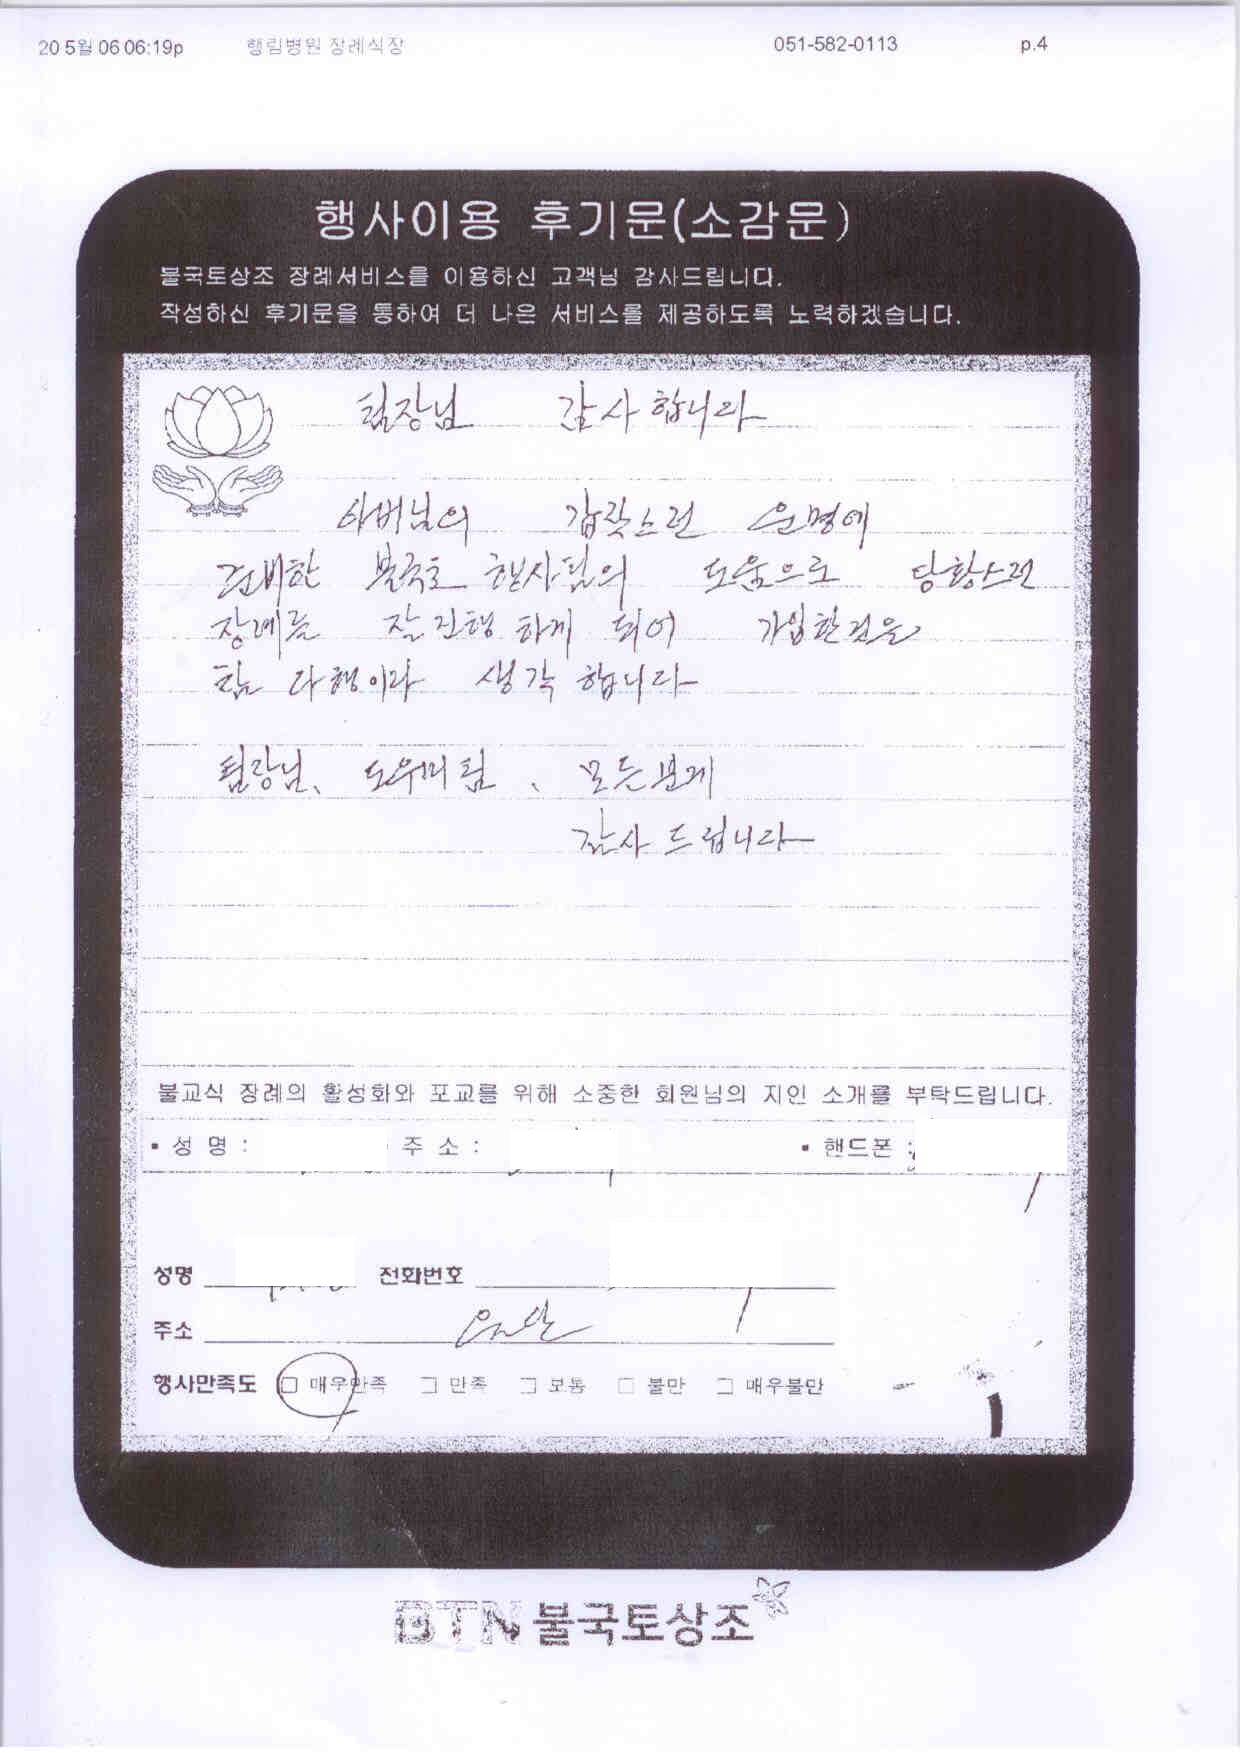 20 5월 06 06:19p 행림병원 장례식장 051-582-0113 p.4
행사이용 후기문(소감문)
불국토상조 장례서비스를 이용하신 고객님 감사드립니다.
작성하신 후기문을 통하여 더 나은 서비스를 제공하도록 노력하겠습니다.
팀장님 감사합니다
아버님의 갑작스런 운명에
준비한 불국토 행사팀의 도움으로 당황스런
장례를 잘 진행 하게 되어 가입한것을
참 다행이라 생각 합니다
팀장님、 도우미 팀 、 모든분께
감사 드립니다
불교식 장례의 활성화와 포교를 위해 소중한 회원님의 지인 소개를 부탁드립니다.
• 성 명 : 주 소 : • 핸드폰 :
성명 전화번호
주소
행사만족도 □ 매우만족 □ 만족 □ 보통 □ 불만 □ 매우불만
BTN불국토상조